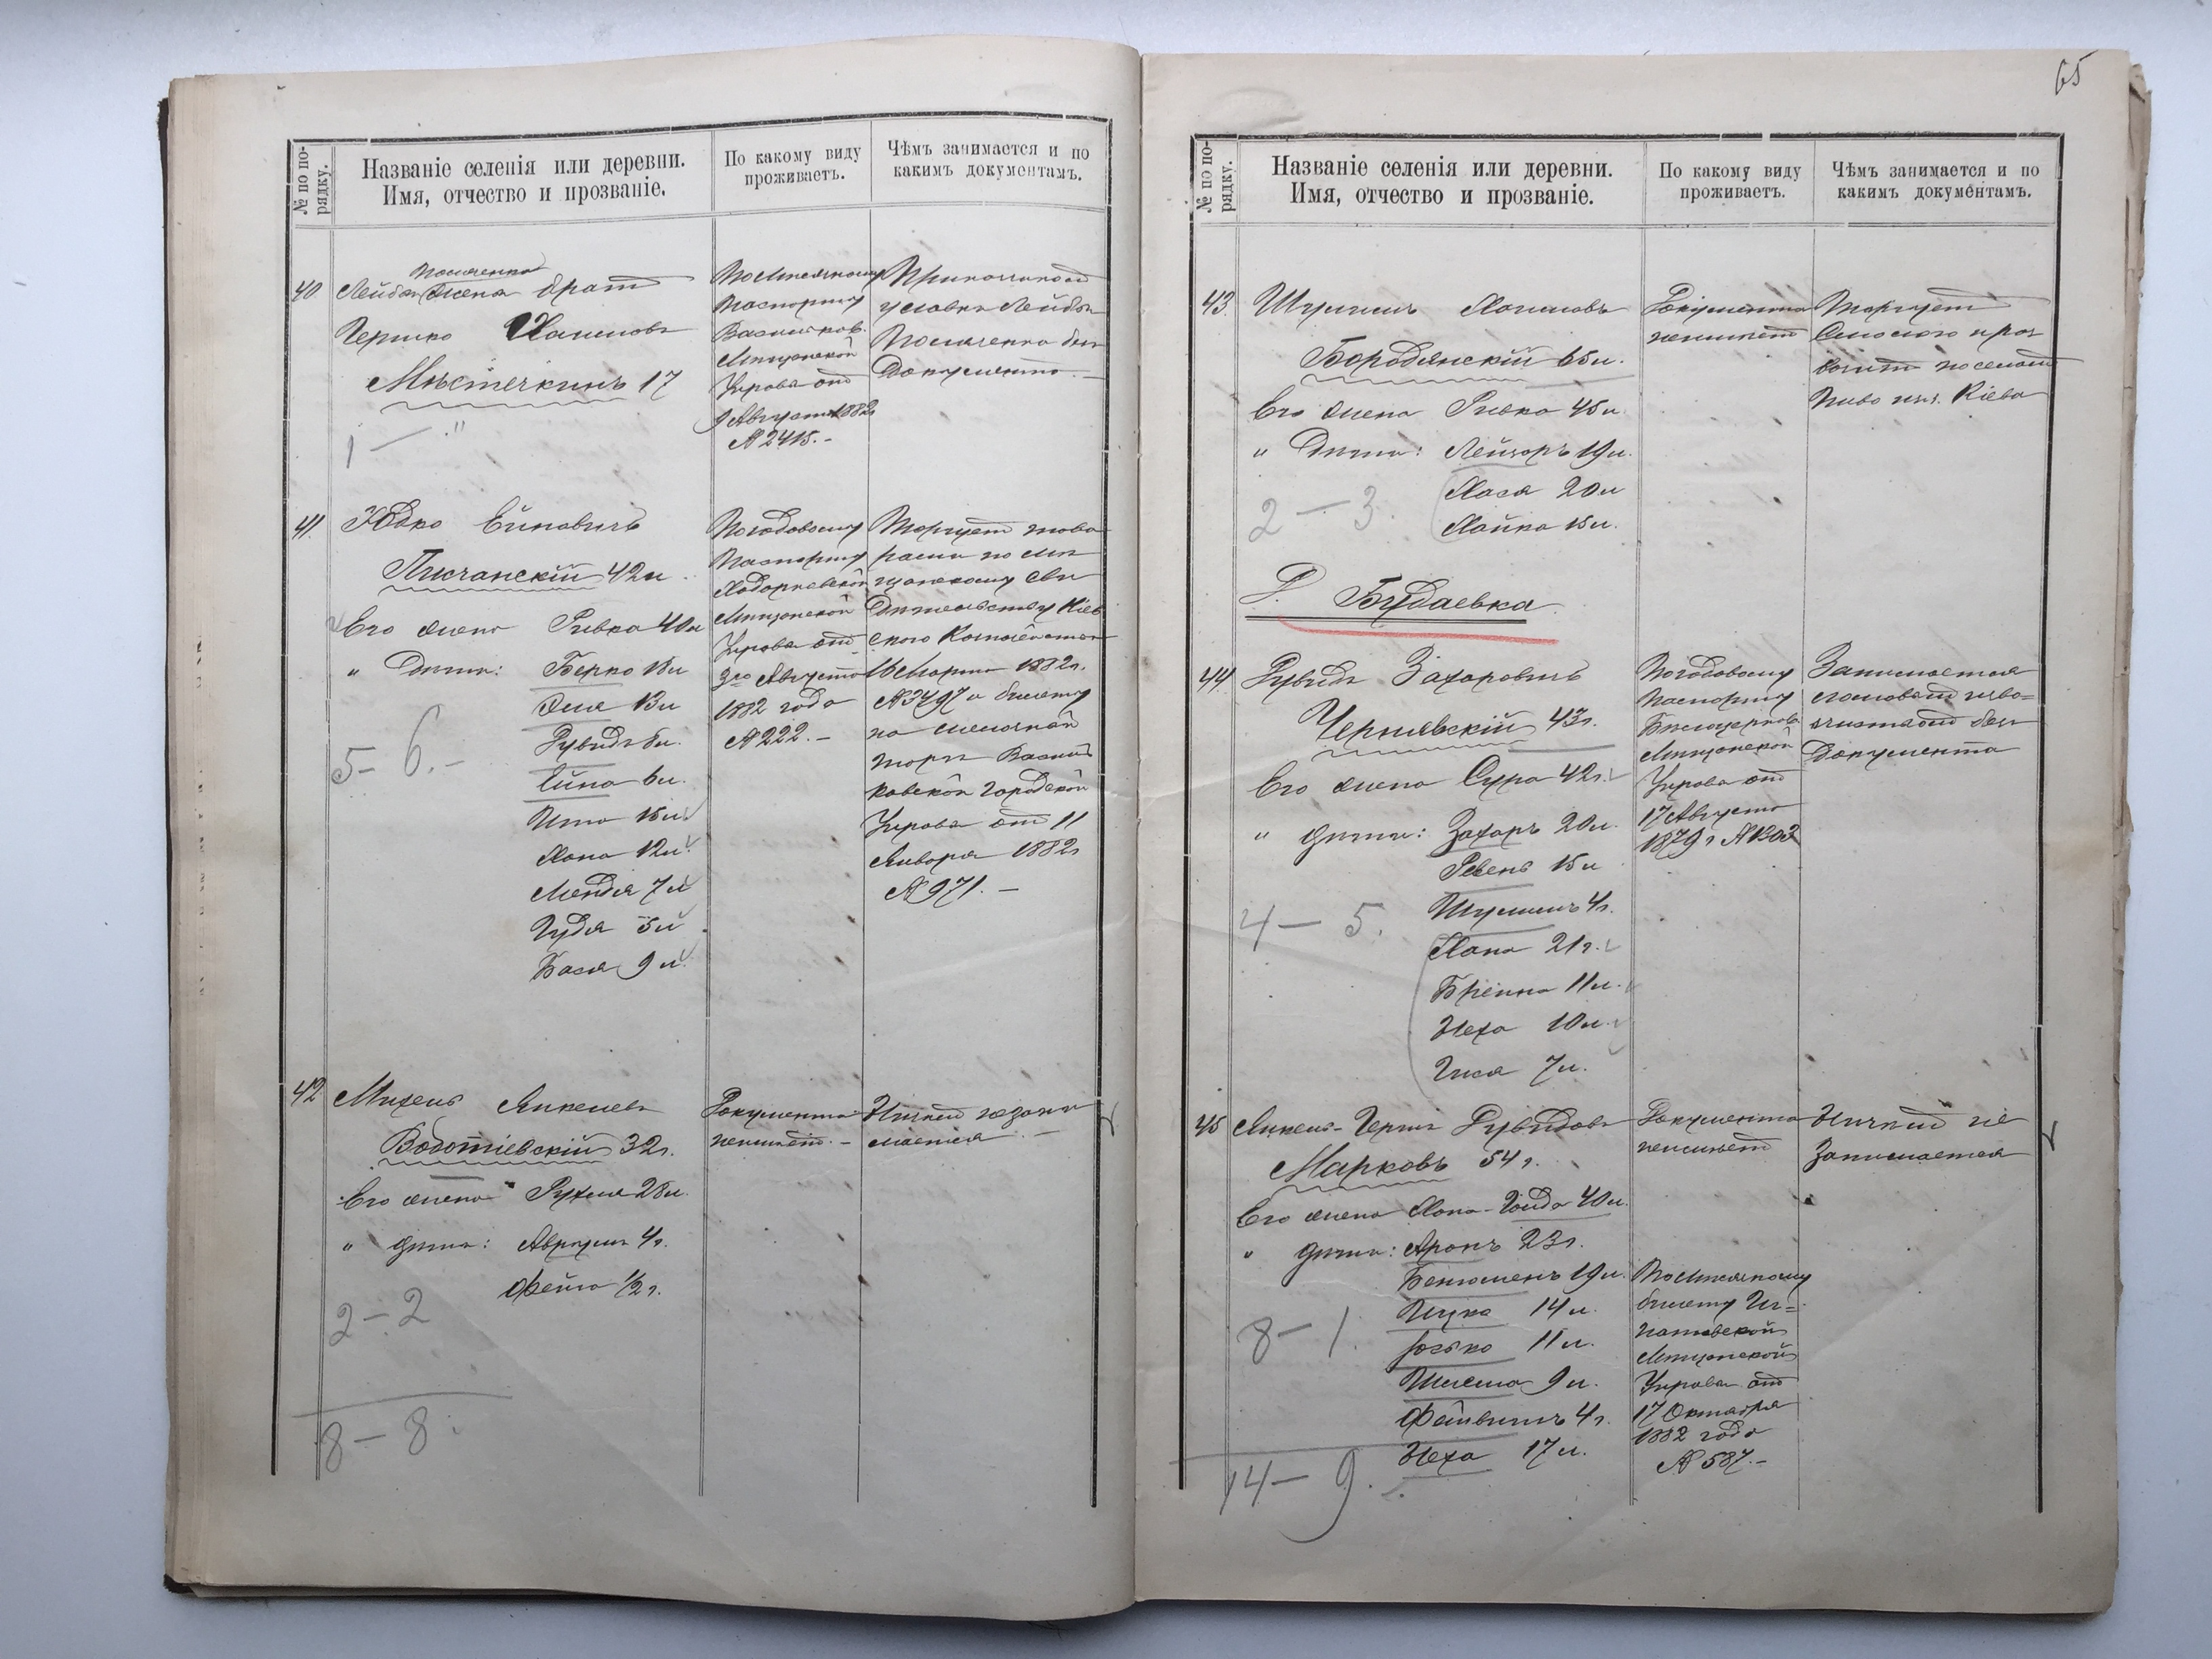 № по по-
рядку.
Названіе селенія или деревни.
Имя, отчество и прозваніе.
По какому виду
проживаетъ.
Чѣмъ занимается и по
какимъ документамъ.
40
Лейбы жена братъ
Гершко Хаимовъ
Мѣстечкинъ 17
1 — "
Паспорту
Васильков.
Мѣщанской
Управы отъ
9 Августа 1882
№ 2415. –
Лейбы
безъ
Документа. –
41.
Юдко
Писчанскій 42 л.
Его жена Ривка 40 л
" Дѣти: Берко 18 л
13 л
Рувидъ 8 л.
Ейна 6 л.
Ита 15 л.
Хана 12 л.
Мендля 7 л
Гудя 5 л
Бася 9 л.
5 – 6. –
Погодовому
Паспорту
Мѣщанской
Управы отъ
3го Августа
1882 года
№ 222. –
Торгуетъ това
рами по мѣ
щанскому сви
Дѣтельству Кіев
ского Казначейства
Марта 1882 г.
№ 3497 и билету
на мелочной
торгъ Василь
ковской Городской
Управы отъ 11
Января 1882 г
№ 971. –
42
Михель Янкелевъ
32 г.
Его жена Рухля 28 л.
" дѣти: Аврумъ 4 г.
Фейга 1/2 г.
2 – 2
Документа
неимѣетъ. –
Ничѣмъ незани
мается. –
8 – 8.
65
№ по по-
рядку.
Названіе селенія или деревни.
Имя, отчество и прозваніе.
По какому виду
проживаетъ.
Чѣмъ занимается и по
какимъ документамъ.
43.
Шулимъ Хаимовъ
Бородянскій 65 л.
Его жена Ривка 45 л.
" Дѣти: Лейзоръ 19 л.
Хася 20 л
Хайка 15 л.
2 – 3.
Документа
неимѣетъ
Торгуетъ
и раз
возитъ
Пиво изъ Кіева
Д. Будаевка
44.
Рувидъ Захаровичъ
Чернявскій 43 г.
Его жена Сура 42 г.
" дѣти: Захаръ 20 л.
15 л
Шулимъ 4 г.
Хана 21 г.
11 л.
Неха 10 л.
7 л.
4 – 5.
Погодовому
Паспорту
Бѣлоцерков
Мѣщанской
Управы отъ
17 Августа
1879 г № 1303
Занимается
безъ
Документа
45
Янкель-Герш Рувидовъ
Марковъ 54 г.
Его жена Хана-Гольда 40 л.
" дѣти: Аронъ 23 г.
Беньюменъ 19 л.
Ицка 14 л.
Іосько 11 л.
Шлема 9 л.
4 г.
Неха 17 л.
8 – 1.
Документа
неимѣетъ
билету Иг=
натовской
Мѣщанской
Управы отъ
17 Октября
1882 года
№ 587. –
Ничѣмъ не
Занимается
14 – 9.